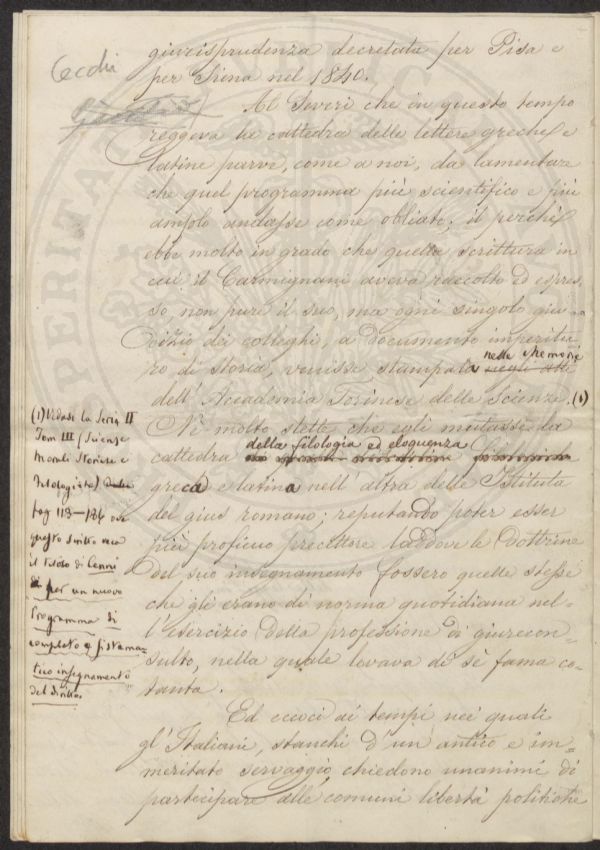 Cecchi
giurisprudenza decretata per Pisa e
per Siena nel 1840.
Al Severi che in questo tempo
reggeva la cattedra delle lettere greche e
latine parve, come a noi, da lamentare
che quel programma più scientifico e più
ampolo andasse come obliato; il perchè
ebbe molto in grado che quella scrittura in
cui il Carmignani aveva raccolto ed espres-
so, non pure il suo, ma ogni singolo giu-
dizio dei colleghi, a documento imperitu
ro di storia, venisse stampata nelle Memorie
dell' Accademia Torinese delle Scienze. (1)
Nè molto stette che egli mutasse la
cattedra della filologia ed eloquenza
greca e latina nell' altra delle Istituta
del gius romano; reputando poter esser
più proficuo precettore laddove le dottrine
del suo insegnamento fossero quelle stesse
che gli erano di norma quotidiana nel-
l' esercizio della professione di giurecon-
sulto, nella quale levava di sè fama co-
tanta.
Ed eccoci ai tempi nei quali
gl' Italiani, stanchi d' un antico e im-
meritato servaggio chiedono unanimi di
partecipare alle comuni libertà politiche
(1) Vedasi la Serie II
Tom III (Scienze
Morali Storiche e
Filologiche) dalla
pag 113-186 ove
questo scritto reca
il titolo di Cenni
per un nuovo
Programma di
completo e sistema-
tico insegnamento
del diritto.